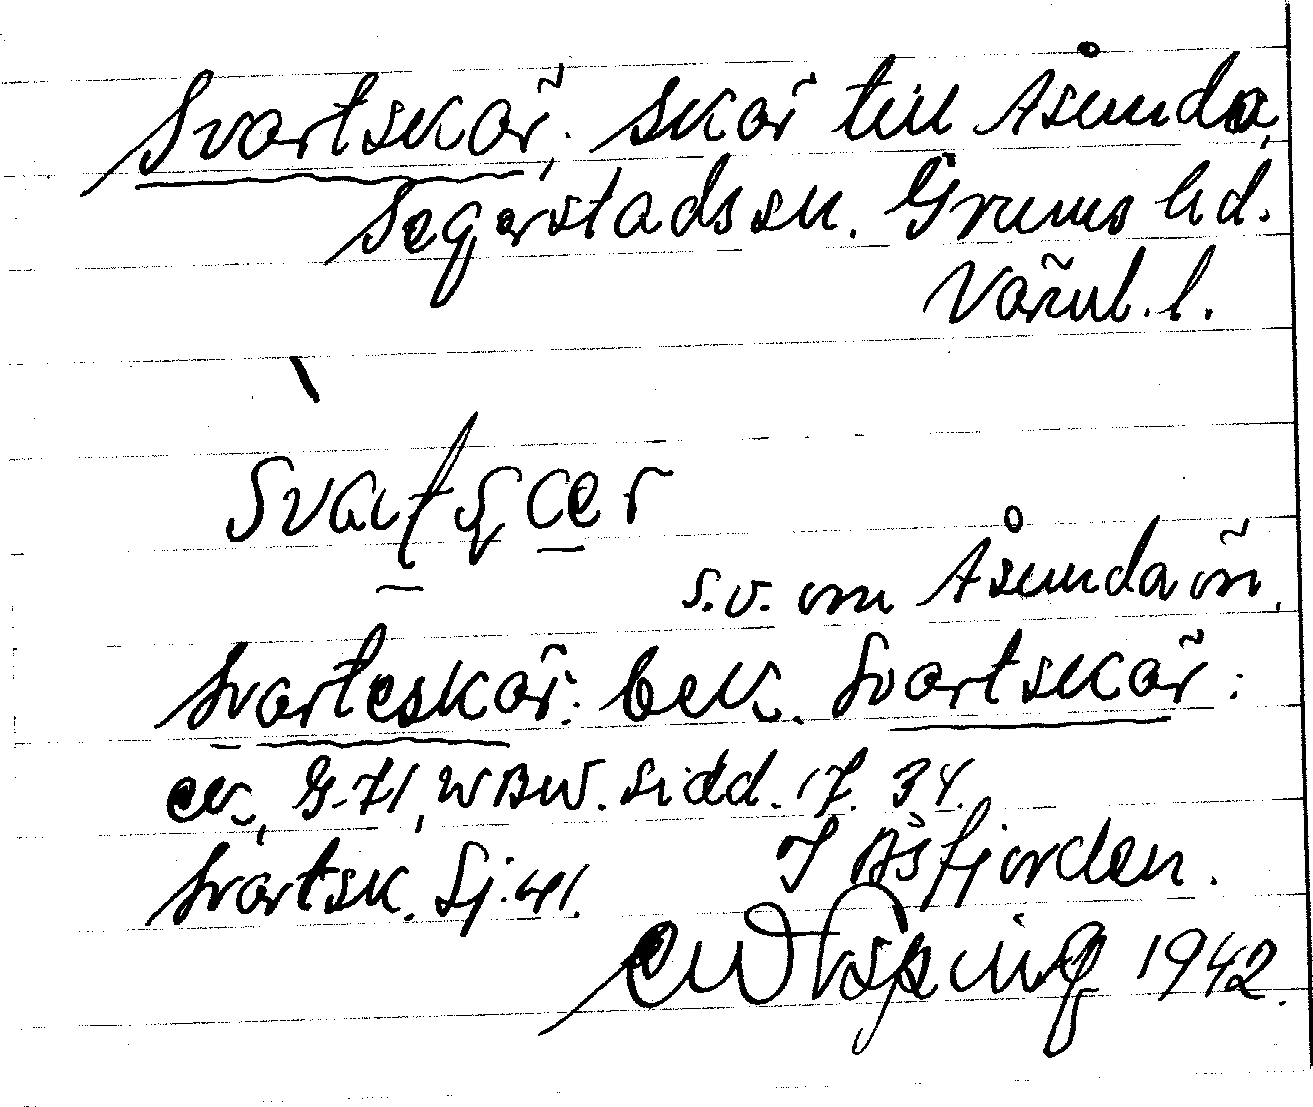 Svartskär, skär till Åsunda,
Segerstads sn. Grums hd.
Värml. l.
s.v. om Åsundaön,
Svarteskär: bek. Svartskär:
ek, G-71, WBW. Sidd. 17. 34.
Svartsk. Sj. 41. I Åsfjorden.
1942.